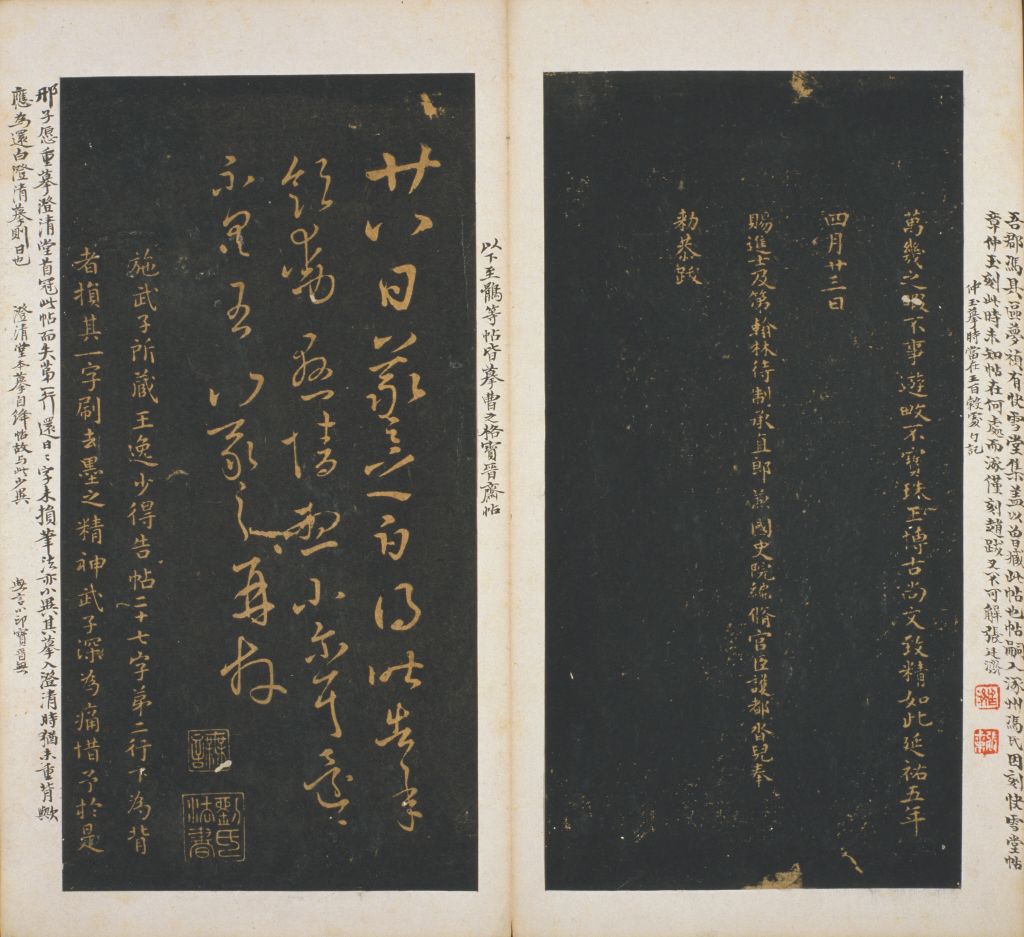 吾郡馮具區夢禎有快雪堂集蓋以曾藏此帖也帖嗣入涿州馮氏因刻快雪堂帖
章仲玉刻此時未知帖在何處而涿僅刻趙跋又不可解張廷濟
仲玉摹時當在王百穀處記
萬幾之暇不事遊畋不寶珠玉博古尚文致精如此延祐五年
四月廿三日
賜進士及第翰林待制承直郎兼國史院編脩官臣護都沓兒奉
勑恭跋
以下至鶻等帖皆摹曹之格寶晉齋帖
廿八日羲之白得昨告承
飲動懸情想小爾耳還
不具王羲之再拜
無言
劉氏法書
施武子所藏王逸少得告帖二十七字第二行下為背
者損其一字刷去墨之精神武子深為痛惜予於是
邢子愿重摹澄清堂首冠此帖而失第一行還日二字未損筆法亦小異其摹入澄清時猶未重背歟
應為還白澄清摹則日也
澄清堂本摹自絳帖故与此少異
無言小印寶晉無